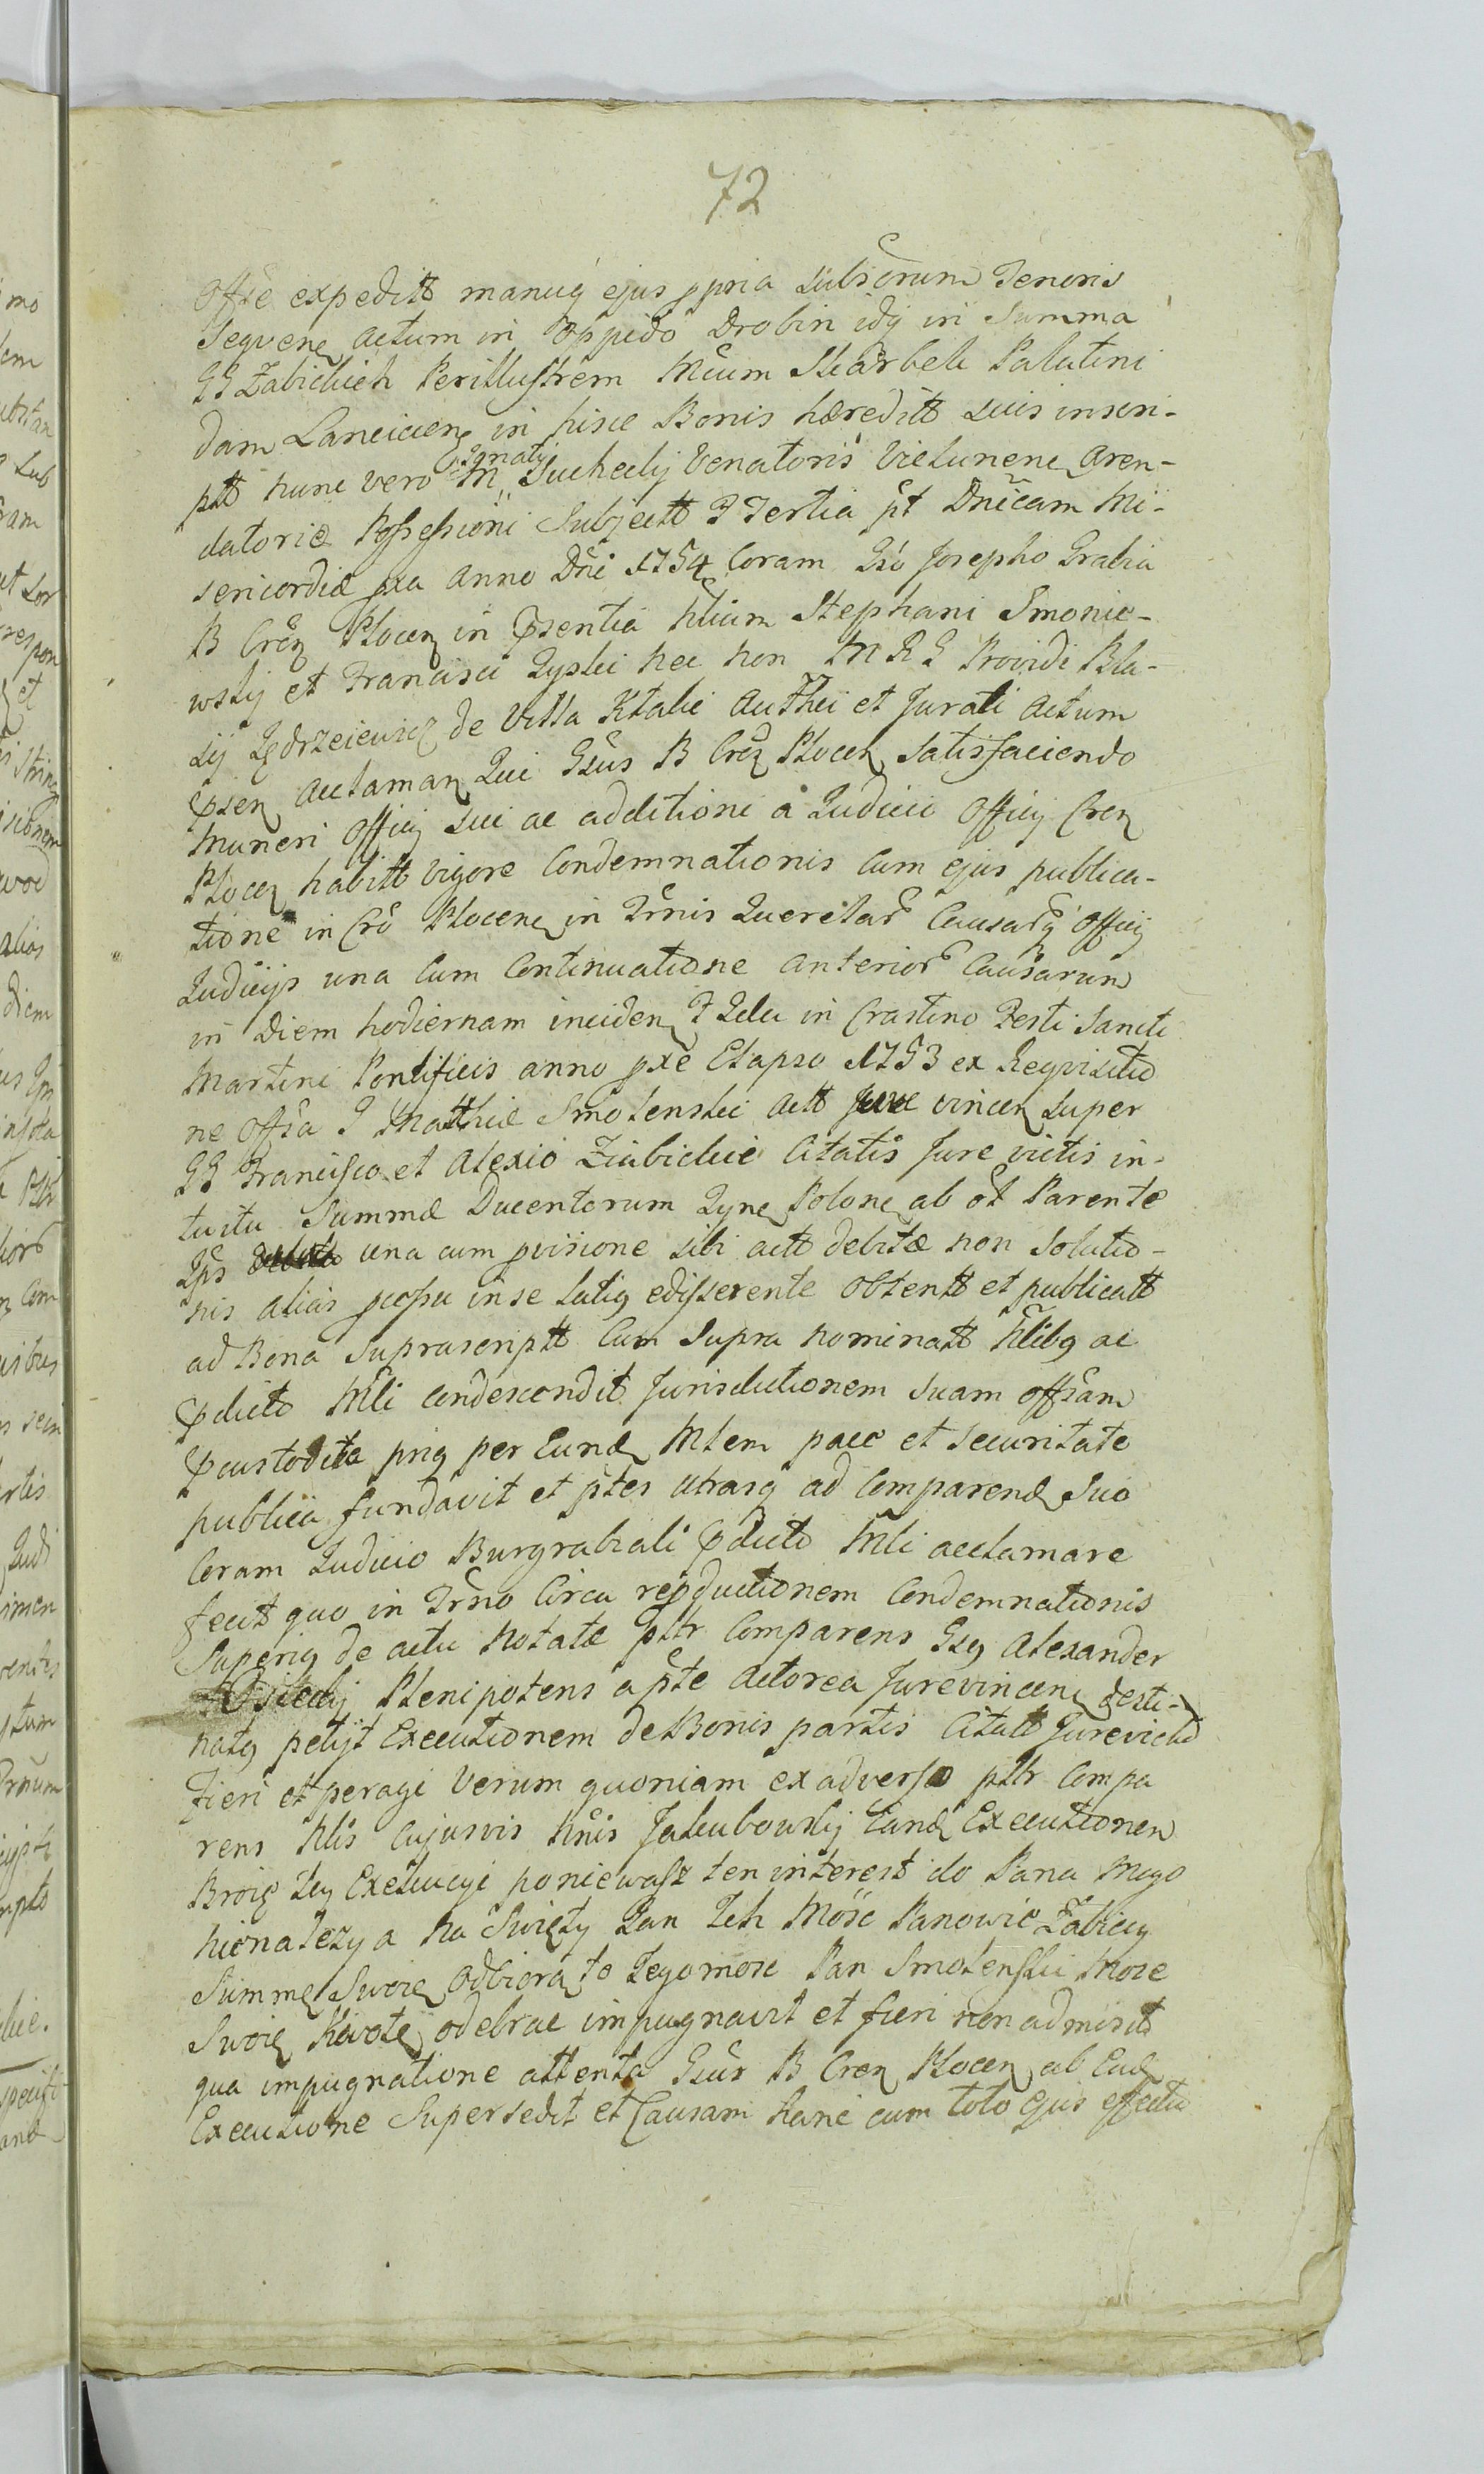 72
Offse expeditt manuq ejus ppria subscrum Tenoris
Seqven Actum in Oppido Drobin idq in Summa
GG Zabickich Perillustrem Mcum Skarbek Palatini
dam Lancicien in hisce Bonis hæreditt suis inscri-
ptt nunc vero M Ignatij Suchecky Venatoris Vielunen Aren-
datoriæ Possessioni Subjectt F Tertia pt Dnicam Mi-
sericordiæ pxa Anno Dni 1754 Coram Gso Josepho Grabia
B Cren Plocen in Pþsentia Nlium Stephani Smonie-
wsky et Francisci Zyski nec non M R G Providi Bla-
sij Jędrzeiewicz de Villa Ktalie Authei et Jurati Actum
þsen Acclaman Qui Gsus B Cren Plocen Satisfaciendo
Muneri Officij sui ac additioni a Judicio Officij Cren
Plocen habitt vigore Condemnationis Cum ejus publica-
tione in Cro Plocen in Trnis Querelar Causarq Officij
Judicijs una Cum Continuatione Anterior Causarum
in Diem hodiernam inciden F 2da in Crastino Festi Sancti
Martini Pontificis anno pxe Elapso 1753 ex Reqvisitio
ne Offsa G Mathiæ Smolenski Actt Jure vincen Super
GG Francisco et Alexio Ziabickie Citatis Jure victis in-
tuitu Summæ Ducentorum Tyn Polon ab ot Parente
Ips una cum pvisione sibi actt debitæ non Solutio-
nis alias pcessu in se latiq edisserente Obtentt et publicatt
ad Bona Suprascriptt Cum Supra nominatt Nlibq ac
þdicto Mli Condescendit Jurisdictionem suam Offsam
þcustodita priq per Eund Mlem pace et securitate
publica fundavit et ptes Utrasq ad Comparend Suo
Coram Judicio Burgrabiali þdicto Mli acclamare
fecit quo in Trno Circa repductionem Condemnationis
Superiq de actu Notatæ pltr Comparens Gsq Alexander
Plenipotens a pte Actorea Jurevincen desti-
natq petijt Executionem de Bonis partis Citatt Jurevictæ
Fieri et peragi Verum quoniam ex adverso pltr Compa
rens Nlis Cujusvis Nnis Jakubowsky Eand Executionem
Bronię tey Exekucyi poniewasz ten interest do Pana Mego
nienalezy a Na Swięty Jan Ich Mość Panowie Zabiccy
Summę Swoię Odbiorą to Jegomosc Pan Smolenski Może
Swoię Kwotę odebrac impugnavit et fieri non admisit
qua impugnatione attenta Gsus B Cren Plocen ab Ead
Executione Supersedit et Causam hanc cum toto Ejus effectu